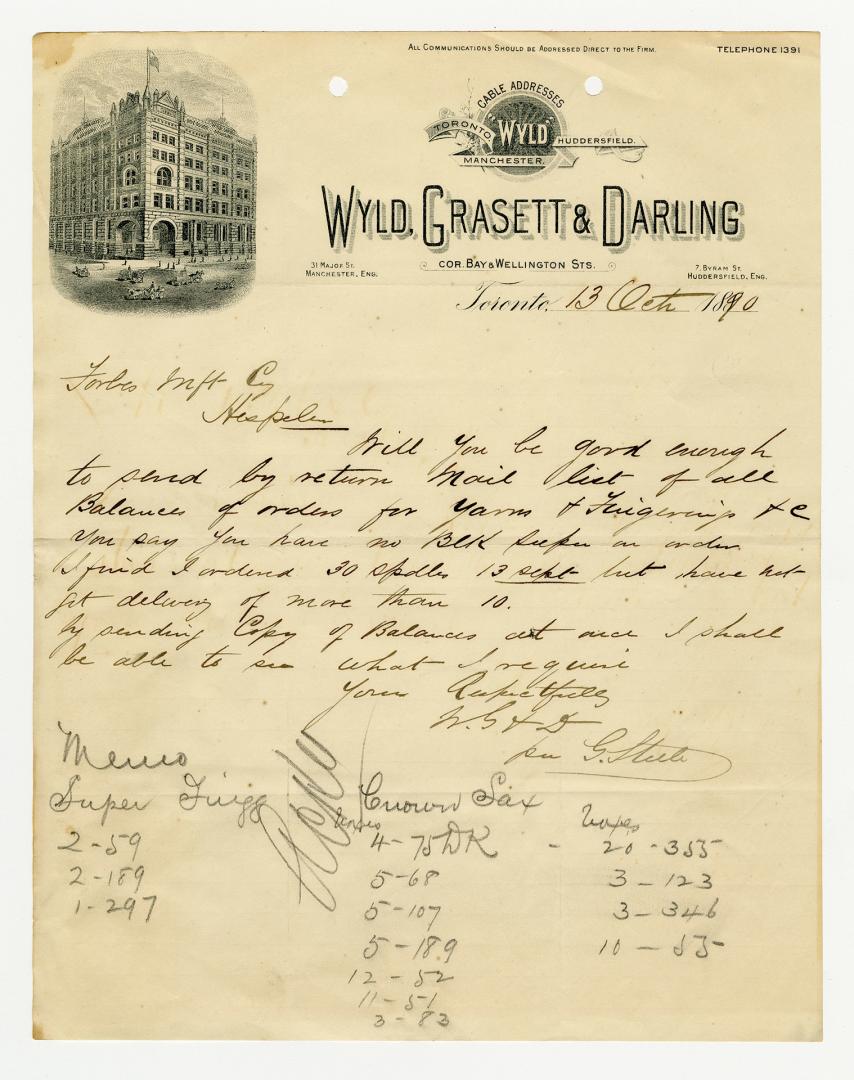 ALL COMMUNICATIONS SHOULD BE ADDRESSED DIRECT TO THE FIRM.
TELEPHONE 1391
CABLE ADDRESSES
TORONTO. "WYLD" HUDDERSFIELD.
MANCHESTER.
WYLD, GRASETT & DARLING
31 MAJOR ST.
MANCHESTER, ENG.
COR. BAY & WELLINGTON STS.
7. BYRAM ST.
HUDDERSFIELD, ENG.
Toronto, 13 Oct 1890
Forbes Mft Cy
Hespeler
Will you be good enough
to send by return mail list of all
Balances of orders for yarns & Fingerings & c
You say you have no BLK Super on order
I find I ordered 30 spdles 13 sept but have not
got delivery of more than 10.
by sending Copy of Balances at once I shall
be able to see what I require
Yours Respectfully
W. G & D
per G. Steele
Memo
Super Fingg
2-59
2-189
1-297
Crown Sax
Boxes
4-75 DK
5-68
5-107
5-189
12-52
11-51
3-83
Boxes
- 20-355
3-123
3-346
10-55